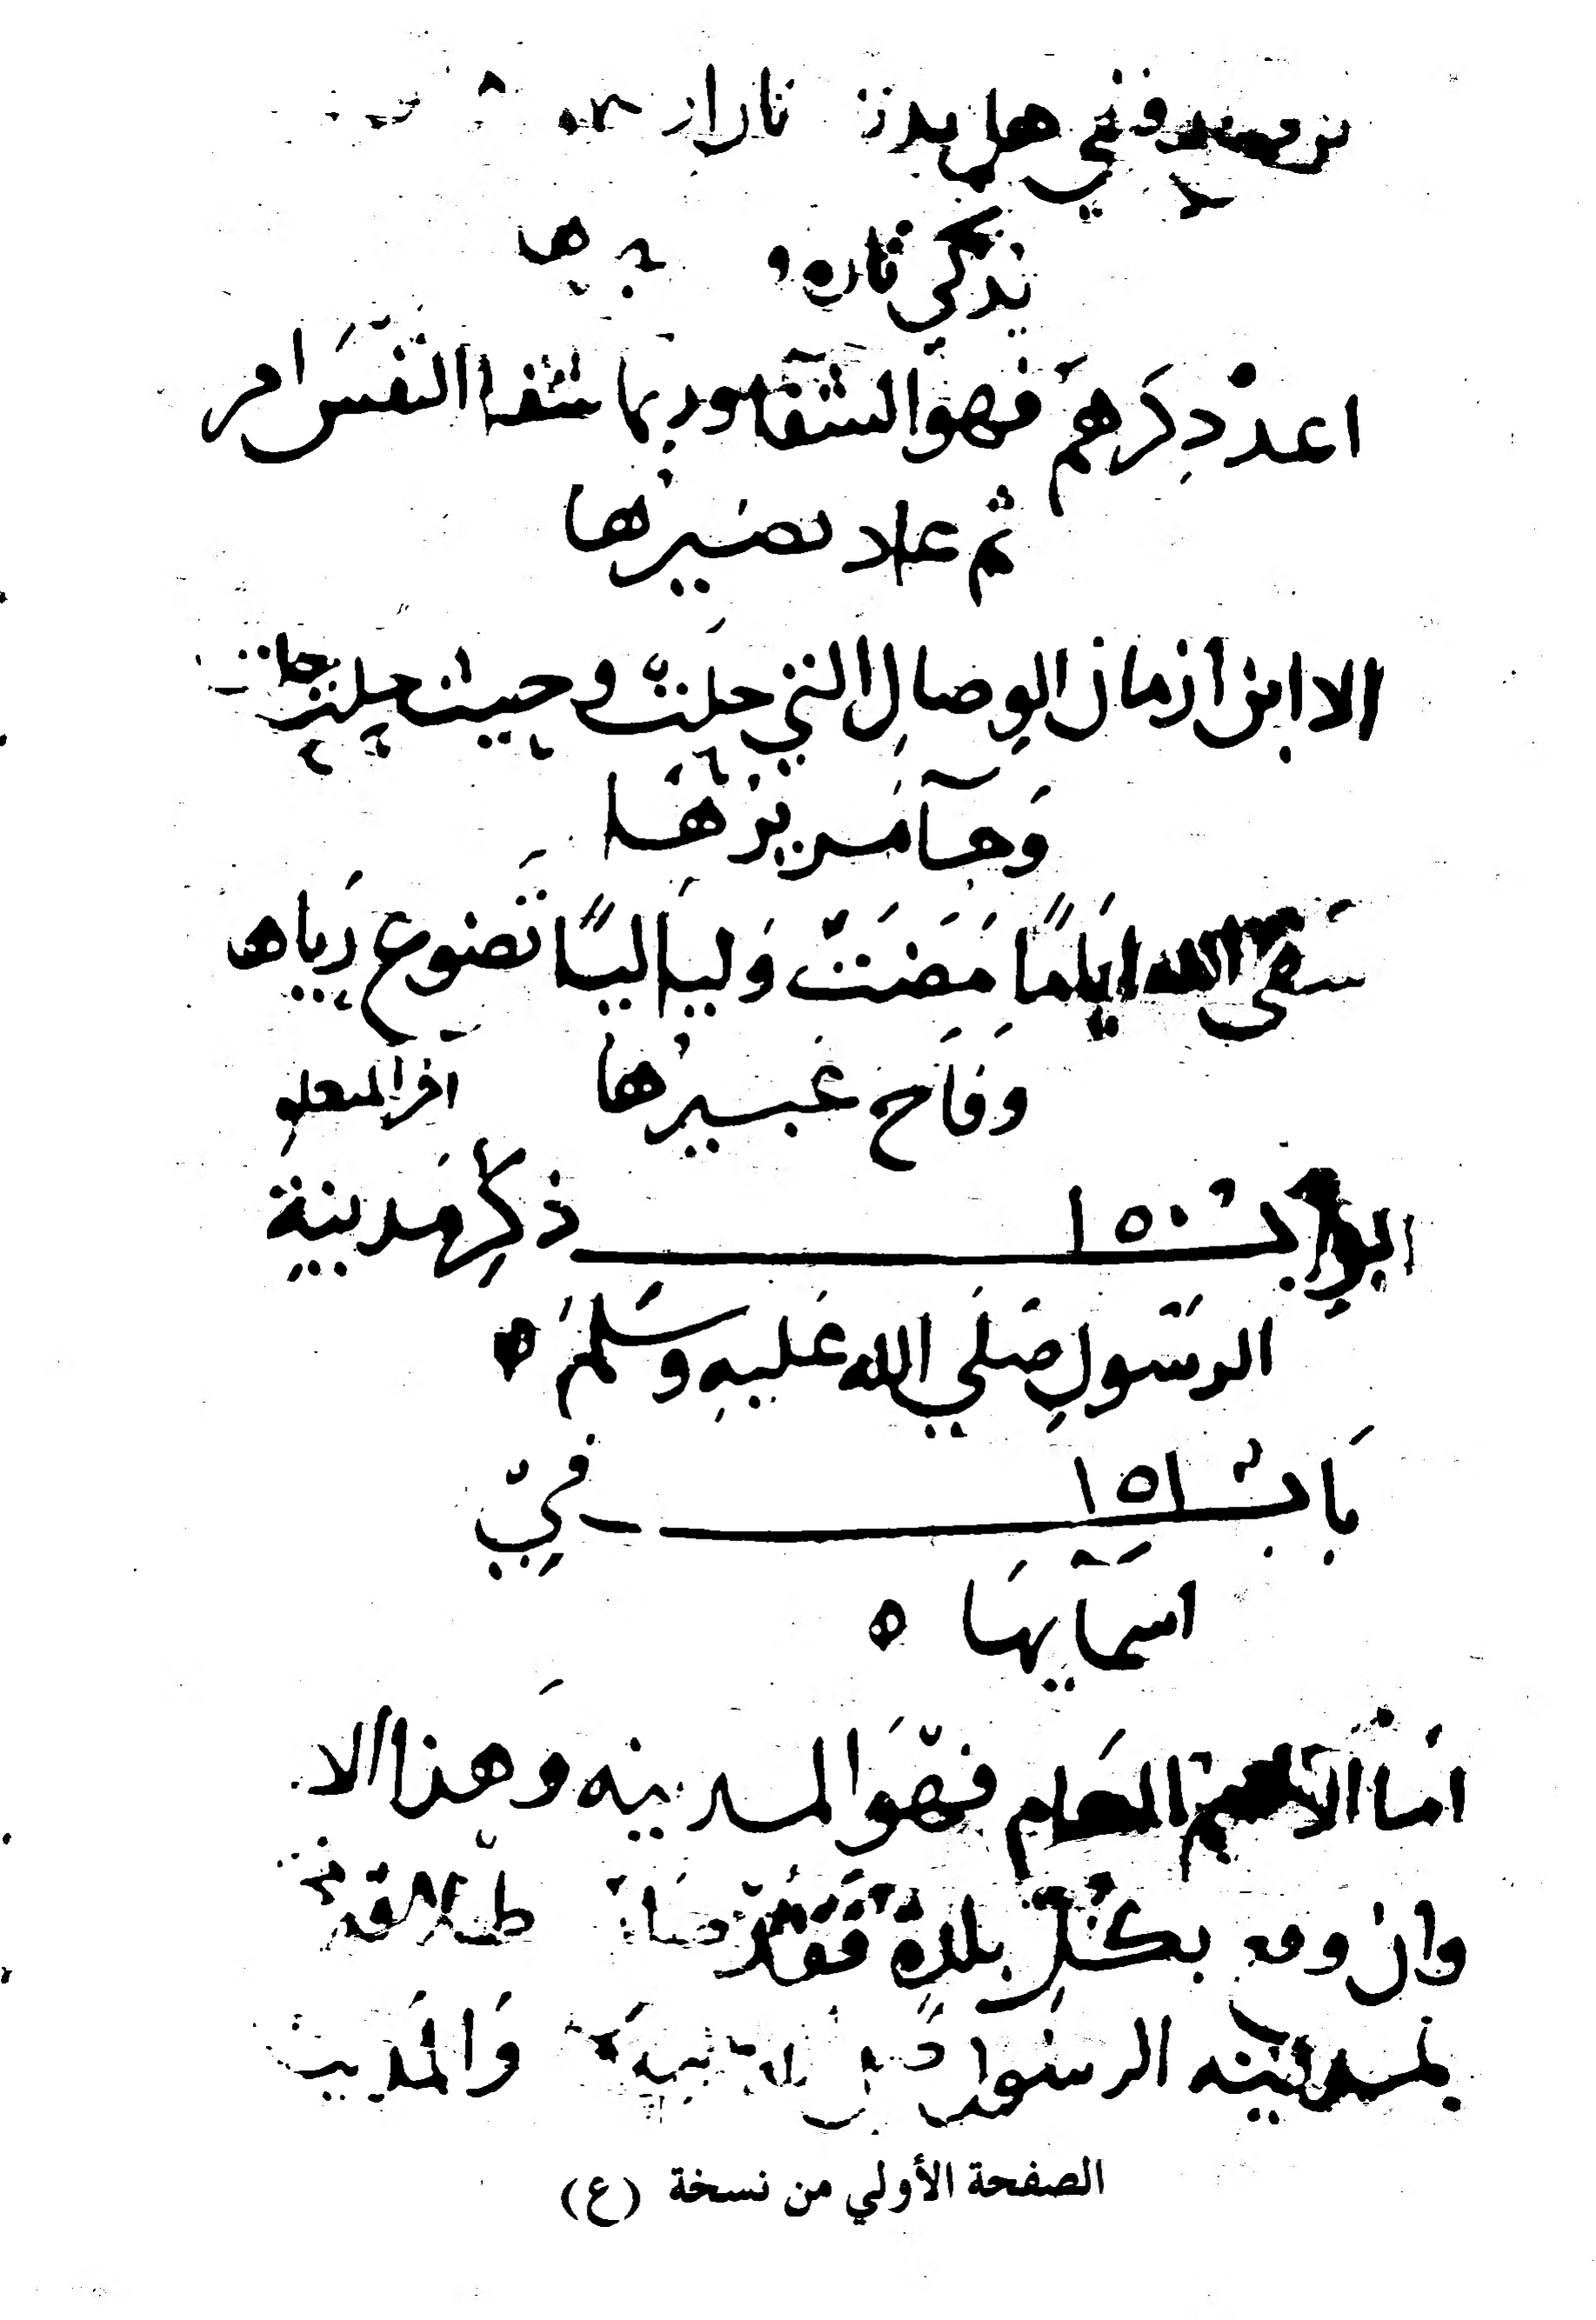 في هل
تذكي ناره
اعد ذكرهم فهو الشفا وربما شفا النفس امر
ثم عاد يضيرها
الا اين ازمان الوصال التي خلت وحيث حلت
وجآ مريرها
سقى الله اياما مضت ولياليا تضوع رياها
وفاح عبيرها اخر المعلو
ابواب ١٥٠ ذكر مدينة
الرسول صلي الله عليه وسلم ه
باب ١٥١ في
اسمآيها ه
اما الاسم العام فهو المدينه وهذا الا
وان وقع بكل بلدة فقد صار طلاقه
بمدينه الرسول والمدين
الصفحة الأولي من نسخة (ع)